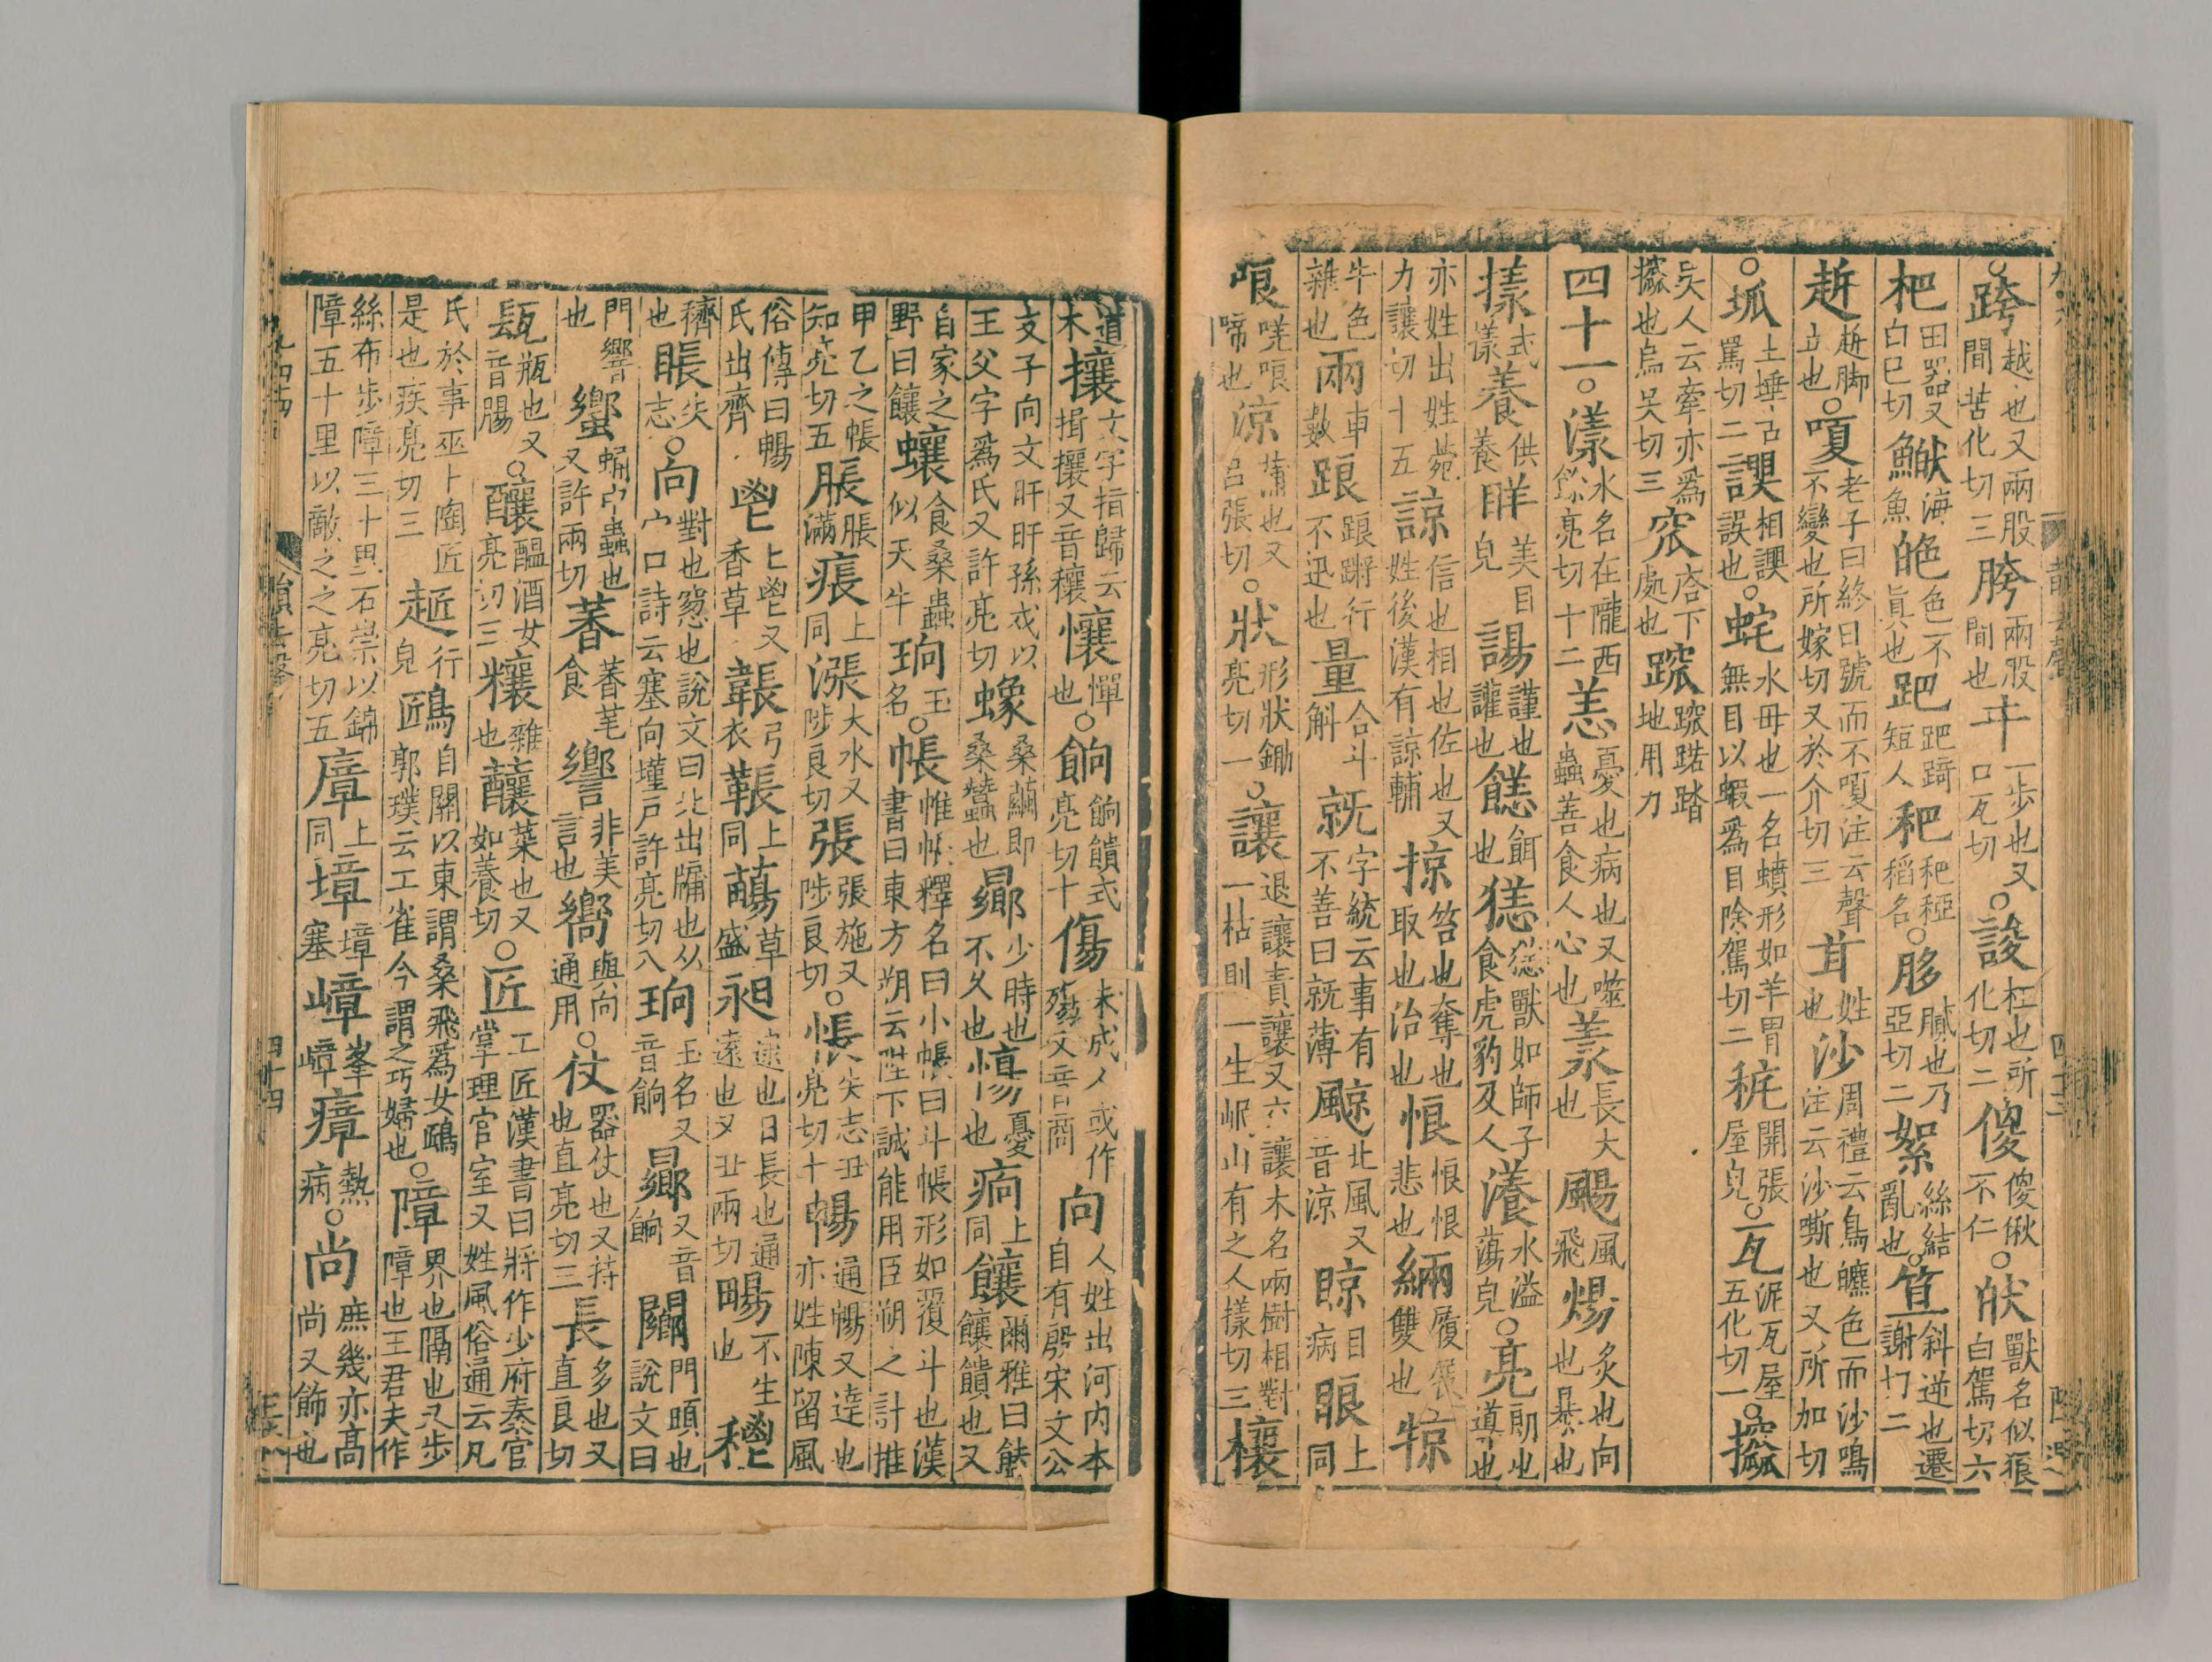 跨越也又兩股間苦化切三胯兩股間也㐄一歩也又口瓦切○誜枉也所化切二傻傻㑋不仁○㹀獸名似狼白駕切六
杷田器又白巴切鮲海魚皅色不真也跁跁踦短人䎱䎱稏稻名○䏧膩也乃亞切二絮絲結亂也○笡斜逆也遷謝切二
跅跅脚立也○嗄老子曰終日號而不嗄注云聲不變也所嫁切又於介切三䒷姓也沙周禮云鳥皫色而沙鳴注云沙嘶也又所加切
○坬土埵古罵切二謑相謑誤也○䖳水母也一名蟦形如羊胃無目以蝦爲目除駕切二秅開張屋皃○瓦泥瓦屋五化切一○攨
吴人云牽亦爲攨也烏吴切三窊㕦下處也䠚䠚踞踏地用力
四十一○漾水名在隴西餘亮切十二恙憂也病也又噬蟲善食人心也羕長大也颺風飛煬炙也向也暴也
㨾式㨾養供養眻美目皃諹讙也讙也䬺餌也㺊㺊獸如師子食虎豹及人瀁水溢蕩皃○亮朗也導也
亦姓出姓苑力讓切十五諒信也相也佐也又姓後漢有諒輔掠笞也奪也取也治也悢悢悢悲也緉履屐雙也㹁
牛色雜也兩車數踉踉蹡行不迅也量合斗斛就字統云事有不善曰就薄䬙北風又音涼晾目病眼上同
哴唴哴啼也涼薄也又吕張切○狀形狀鋤亮切一○讓退讓責讓又六讓木名兩樹相對一枯則一生岷山有之人㨾切三欀
道木攘文字指歸云揖攘又音穰懹憚也○餉餉饋式亮切十傷未成人或作殤又音商向人姓出河内本自有殷宋文公
支子向文旰旰孫戎以王父字爲氏又許亮切蟓桑繭即桑蠶也曏少時也不久也愓憂也㾮上同饟爾雅曰饁饟饋也又
自家之野曰饟蠰食桑蟲似天牛珦玉名○帳帷帳釋名曰小帳曰斗帳形如覆斗也漢書曰東方朔云陛下誠能用臣朔之計推
甲乙之帳知亮切五脹脹滿痮上同漲大水又陟良切張張施又陟良切○悵失志丑亮切十暢通暢又達也亦姓陳留風
俗傳曰暢氏出齊鬯上鬯又香草韔弓衣䩨上同䔑草盛昶達也日長也通遠也又丑兩切畼不生也𥡞
穧也䀶失志○向對也窻也說文曰北出牖也从宀口詩云塞向墐戸許亮切八珦玉名又音餉曏又音餉闀門頭也說文曰
門響也蠁蛹虫蟲也又許兩切萫萫芼食響非美言也嚮與向通用○仗器仗也又持也直亮切三長多也又直良切
瓺瓶也又音腸○釀醖酒女亮切三糨雜也䕥菜也又如養切○匠工匠漢書曰將作少府秦官掌理官室又姓風俗通云凡
氏於事巫卜陶匠是也疾亮切三䞪行皃䲂自關以東謂桑飛爲女䲂郭璞云工雀今謂之巧婦也○障界也隔也又步障也王君夫作
絲布步障三十里石崇以錦障五十里以敵之之亮切五㢓上同墇墇塞嶂峯嶂瘴熱病○尚庶幾亦高尚又飾也
四十四